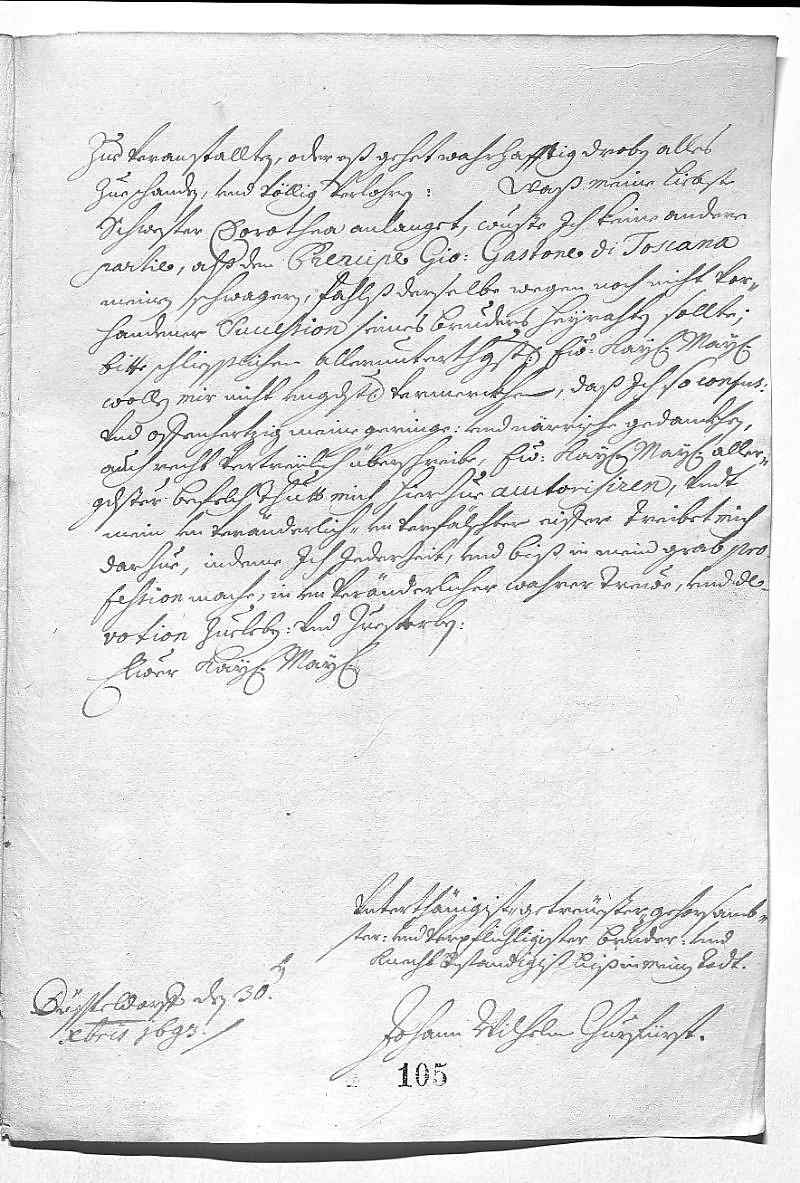 Zue Veranstallten, oder eß gehet wahrhafftig droben alles
Zueschanden, und völlig verlohren: Waß meine liebste
Schwester Dorothea anlanget, wuste Ich keine andere
partie, alß den Prencipe Gio: Gastone di Toscana
meinen schwagern, fahlß derselbe wegen noch nicht vor-
handener Succession seines bruders heyrathen sollte;
bitte schließlichen allerunterthgst: Ew: Kayß: Mayß:
wollen mir nicht ungdst: vermercken, daß Ich so confus:
und offenhertzig meine geringe: und närriche gedancken,
auch recht vertreülich überschreibe, Ew: Kayß: Mayß: aller-
gdster befelch thutt mich hierzue autorisiren, undt
mein unveränderlich- unverfälschter eiffer treibet mich
darzue, indeme Ich Jederzeit, und biß in mein grab pro
fession mache, in unveränderlicher wahrer treüe, und de-
votion Zueleben: und Zuesterben:
Ewer Kayß: Mayß:
Unterthänigist, getreüester, gehorsamb-
ster: und verpflichtigister bruder: und
Knecht bständigist biß in meinen Todt.
Düsseldorff den 30.
xbris 1693.
Johann Wilhelm Churfürst.
105